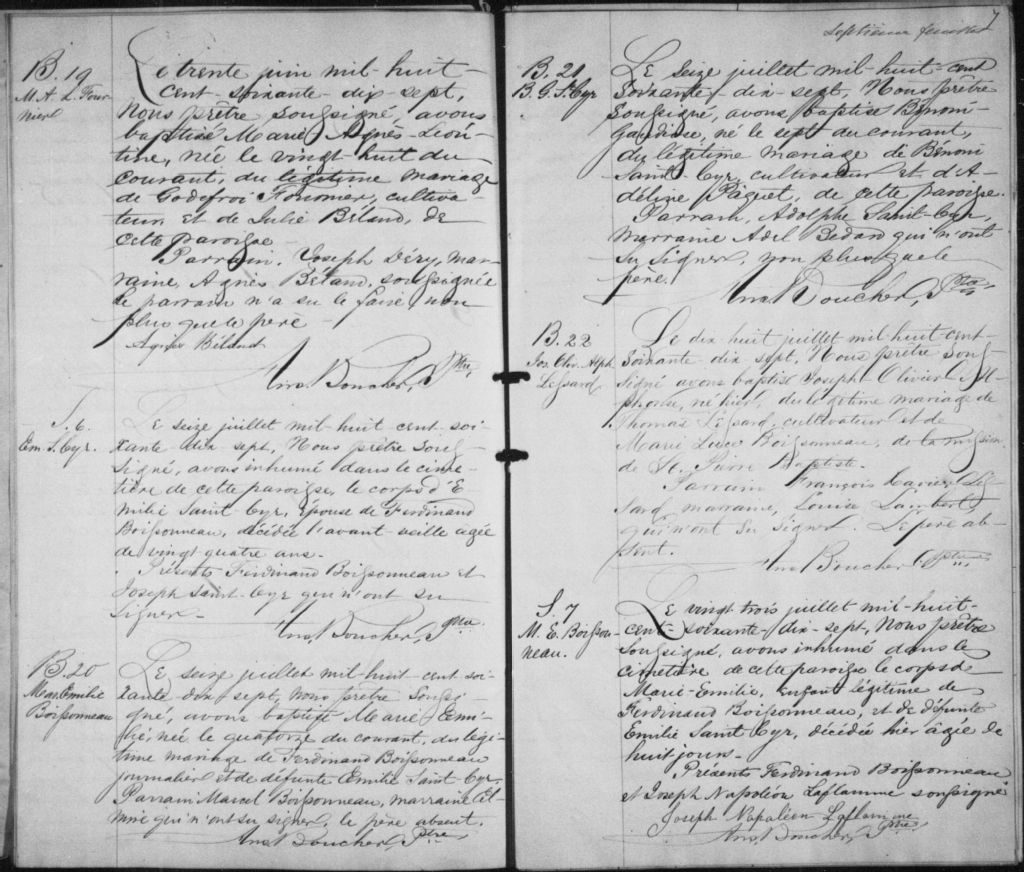 B. 19
M. A. L. Four-
nier
Le trente juin mil-huit-
cent-soixante-dix-sept,
Nous prêtre soussigné, avons
baptisé Marie Agnès-Léon-
tine, née le vingt-huit du
courant, du légitime mariage
de Godefroi Fournier, cultiva-
teur et de Julie Béland, de
cette paroisse.
Parrain, Joseph Déry, mar-
raine, Agnès Béland, soussignée
le parrain n'a su le faire non
plus que le père -
Agnès Béland
Boucher, Ptre,
S. 6.
Em. S. Cyr.
Le seize juillet mil-huit cent-soi-
xante-dix-sept, Nous prêtre Sous-
Signé, avons inhumé dans le cime-
tière de cette paroisse, le corps d'É-
milie Saint Cyr, Épouse de Ferdinand
Boissonneau, décédée l'avant-veille agée
de vingt quatre ans.-
Présents Ferdinand Boissonneau et
Joseph Saint-Cyr qui n'ont su
signer -
Boucher, Ptre.
B. 20
Mar. Emilie
Boissonneau
Le seize juillet mil-huit cent soi-
xante-dix sept, nous prêtre Soussi-
gné, avons baptisé Marie Émi-
lie, née le quatorze du courant, du légi-
time mariage de Ferdinand Boissonneau
journalier et de défunte Emilie Saint-Cyr.
Parrain Marcel Boissonneau, marraine
qui n'ont su signer, le père absent.
Boucher, Ptre
7
Septième feuillet
B. 21
B. G. St Cyr
Le Seize juillet mil-huit-cent
Soixante-dix-sept, Nous prêtre
Soussigné, avons baptisé
né le sept du courant,
du légitime mariage de Bénoni
Saint-Cyr, cultivateur et d'A-
déline Paquet, de cette paroisse.
Parrain, Adolphe Saint-Cyr,
marraine Adel Bedard qui n'ont
su signer, non plus que le
père.
Boucher, Ptre
B. 22
Jos. Oliv. Alph.
Lessard
Le dix huit juillet mil huit cent-
soixante dix sept, Nous prêtre Sous-
signé avons baptisé Joseph-Olivier-Al-
phonse, né hier, du légitime mariage de
Thomas Lessard, cultivateur et de
Marie Luce Boissonneau, de la mission
de St. Baptiste.
Parrain François Xavier Les-
sard, marraine, Louise Lambert
qui n'ont su signer. Le père ab-
sent.
Boucher Ptre
S. 7
M. E. Boisson-
neau.
Le vingt trois juillet mil-huit-
cent-soixante-dix-sept, Nous prêtre
Soussigné, avons inhumé dans le
cimetière de cette paroisse le corps de
Marie-Emilie, enfant légitime de
Ferdinand Boissonneau, et de défunte
Emilie Saint Cyr, décédée hier âgée de
huit jours.-
Présents Ferdinand Boissonneau
et Joseph Napoléon Laflamme soussigné
Joseph Napoléon Laflamme
Boucher, Ptre